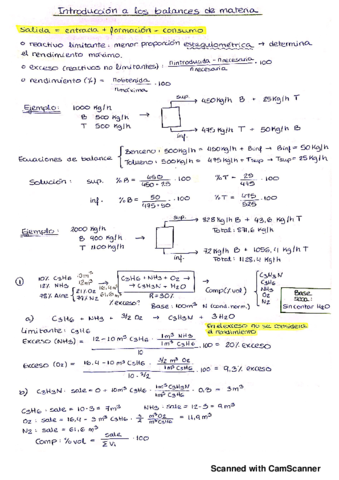 Introducción a los balances de materia
salida = entrada + formación - consumo
o reactivo limitante: menor proporción estequiométrica → determina
el rendimiento máximo.
o exceso (reactivos no limitantes): nintroducida - nnecesaria / nnecesaria · 100
o rendimiento (%) = nobtenida / nmáxima · 100
Ejemplo: 1000 Kg/h
B 500 Kg/h
T 500 Kg/h
sup. → 450 Kg/h B + 25 Kg/h T
inf. → 475 Kg/h T + 50 Kg/h B
Ecuaciones de balance
Benceno: 500 Kg/h = 450 Kg/h + Binf → Binf = 50 Kg/h
Tolueno: 500 Kg/h = 475 Kg/h + Tsup → Tsup = 25 Kg/h
Solución: sup. %B = 450 / 450+25 · 100 %T = 25 / 475 · 100
inf. %B = 50 / 475+50 · 100 %T = 475 / 525 · 100
Ejemplo: 2000 Kg/h
B 900 Kg/h
T 1100 Kg/h
sup. → 828 Kg/h B + 43,6 Kg/h T
Total: 871,6 Kg/h
inf. → 72 Kg/h B + 1056,4 Kg/h T
Total: 1128,4 Kg/h
① 10% C3H6
12% NH3
78% Aire 21% O2
79% N2
C3H6 + NH3 + O2 →
→ C3H3N + H2O
R = 30%
¿exceso?
Base: 100m³ N (cond. norm.)
Comp (/vol)
C3H3N
C3H6
NH3
O2
N2
Sin contar H2O
a) C3H6 + NH3 + 3/2 O2 → C3H3N + 3H2O
Limitante: C3H6
En el exceso no se considera
el rendimiento
Exceso (NH3) = 12 - 10 m³ C3H6 · 1m³ NH3 / 1m³ C3H6 / 10 · 100 = 20% exceso
Exceso (O2) = 16,4 - 10 m³ C3H6 · 3/2 m³ O2 / 1m³ C3H6 / 10 · 3/2 · 100 = 9,3% exceso
b) C3H3N · sale = 0 + 10m³ C3H6 · 1m³ C3H3N / 1m³ C3H6 · 0.3 = 3m³
C3H6 · sale = 10 - 3 = 7m³ NH3 · sale = 12 - 3 = 9m³
O2 · sale = 16,4 - 3 m³ C3H6 · 3/2 m³ O2 / m³ C3H6 = 11,9m³
N2 · sale = 61,6 m³
Comp: % vol = sale / Σ Vi · 100
Scanned with CamScanner